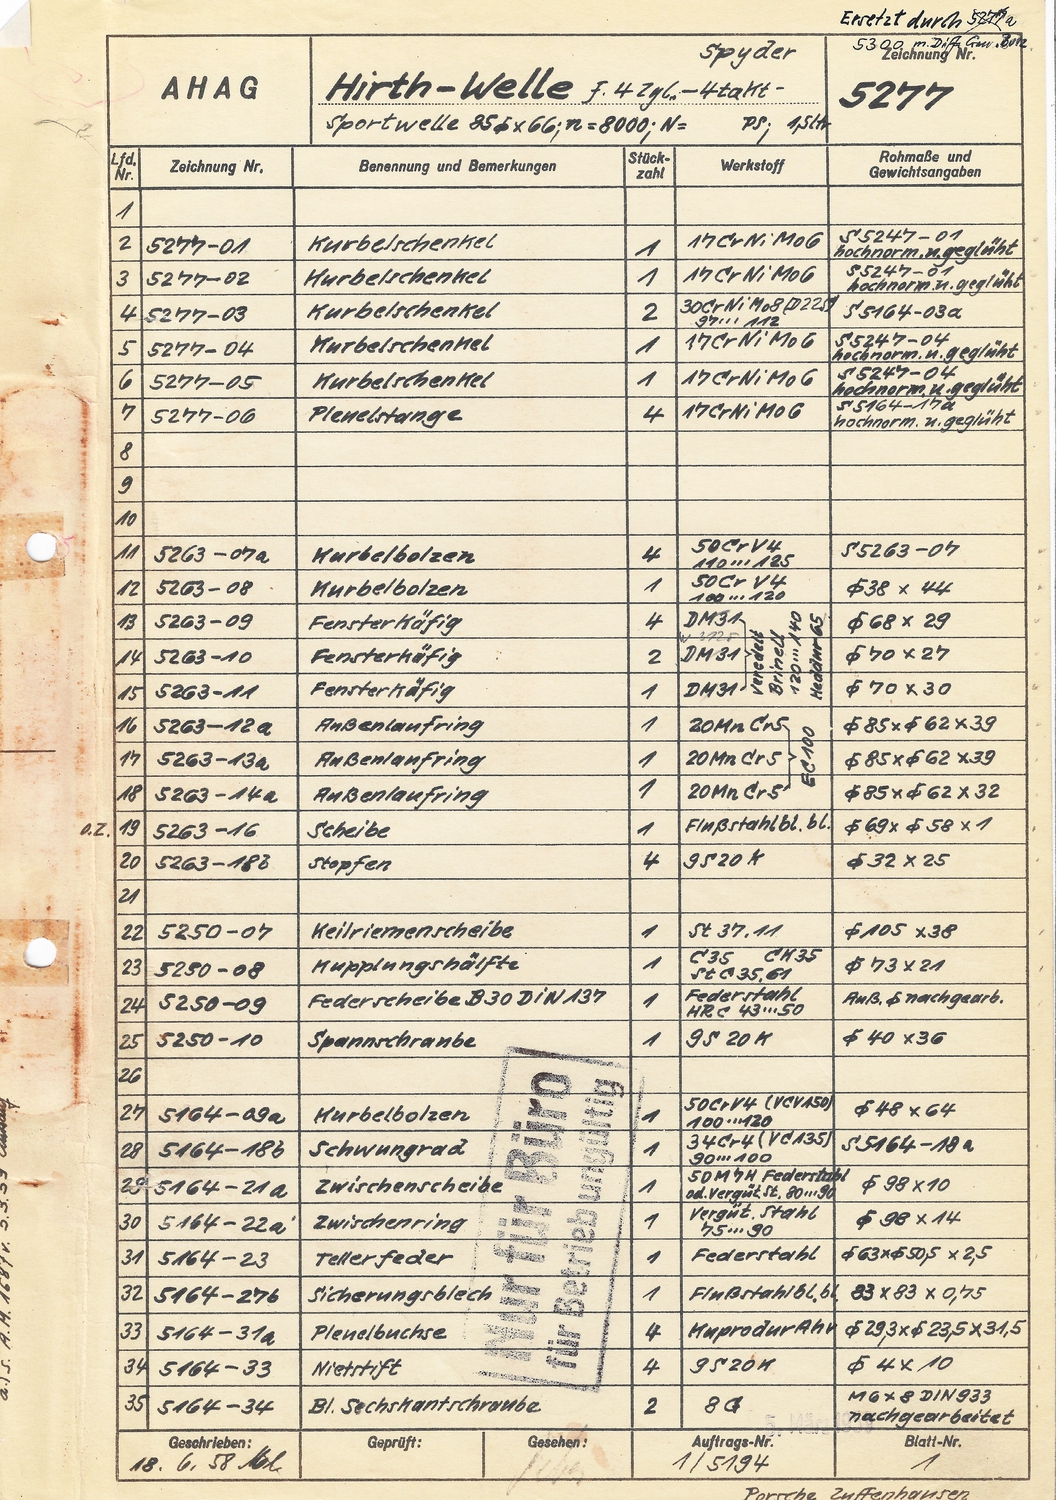 Ersetzt durch 5277a
5300 m. Diff. Gew. Bolz
AHAG
Spyder
Hirth-Welle f. 4 Zyl.-4takt-
Sportwelle 85ϕ x 66; n = 8000; N = PS; 1,5 Ltr
Zeichnung Nr.
5277
Lfd. Nr. Zeichnung Nr. Benennung und Bemerkungen Stück-zahl Werkstoff Rohmaße und Gewichtsangaben
1
2 5277-01 Kurbelschenkel 1 17CrNiMo6 S5247-01 hochnorm. u. geglüht
3 5277-02 Kurbelschenkel 1 17CrNiMo6 S5247-01 hochnorm. u. geglüht
4 5277-03 Kurbelschenkel 2 30CrNiMo8 (D225) 97...112 S5164-03a
5 5277-04 Kurbelschenkel 1 17CrNiMo6 S5247-04 hochnorm. u. geglüht
6 5277-05 Kurbelschenkel 1 17CrNiMo6 S5247-04 hochnorm. u. geglüht
7 5277-06 Pleuelstange 4 17CrNiMo6 S5164-17a hochnorm. u. geglüht
8
9
10
11 5263-07a Kurbelbolzen 4 50CrV4 110...125 S5263-07
12 5263-08 Kurbelbolzen 1 50CrV4 100...120 ϕ38 x 44
13 5263-09 Fensterkäfig 4 DM31 ϕ 68 x 29
14 5263-10 Fensterkäfig 2 DM31 ϕ 70 x 27
15 5263-11 Fensterkäfig 1 DM31 ϕ 70 x 30
Veredelt
Brinell
120...140
Heddur 65
16 5263-12a Außenlaufring 1 20MnCr5 ϕ 85xϕ 62 x 39
17 5263-13a Außenlaufring 1 20MnCr5 ϕ 85xϕ 62 x 39
18 5263-14a Außenlaufring 1 20MnCr5 ϕ 85xϕ 62 x 32
EC100
o.Z. 19 5263-16 Scheibe 1 Flußstahlbl. bl. ϕ 69x ϕ 58 x 1
20 5263-18b Stopfen 4 9S20K ϕ 32 x 25
21
22 5250-07 Keilriemenscheibe 1 St 37.11 ϕ 105 x 38
23 5250-08 Kupplungshälfte 1 C35 CK35 StC35.61 ϕ 73 x 21
24 5250-09 Federscheibe B30 DIN 137 1 Federstahl HRC 43...50 Auß. ϕ nachgearb.
25 5250-10 Spannschraube 1 9S20K ϕ 40 x 36
26
27 5164-09a Kurbelbolzen 1 50CrV4 (VCV150) 100...120 ϕ 48 x 64
28 5164-18b Schwungrad 1 34Cr4 (VC135) 90...100 S5164-18a
29 5164-21a Zwischenscheibe 1 50M7H Federstahl od. Vergüt. St. 80...90 ϕ 98 x 10
30 5164-22a Zwischenring 1 Vergüt. Stahl 75...90 ϕ 98 x 14
31 5164-23 Tellerfeder 1 Federstahl ϕ63xϕ50,5 x 2,5
32 5164-27b Sicherungsblech 1 Flußstahlbl. bl. 83 x 83 x 0,75
33 5164-31a Pleuelbuchse 4 Kuprodur Rohr ϕ 29,3xϕ 23,5 x 31,5
34 5164-33 Nietstift 4 9S20K ϕ 4 x 10
35 5164-34 Bl. Sechskantschraube 2 8G M6 x 8 DIN933 nachgearbeitet
Nur für Büro
für Betrieb ungültig
Geschrieben: Geprüft: Gesehen: Auftrags-Nr. Blatt-Nr.
18. 6. 58 1/5194 1
Porsche Zuffenhausen